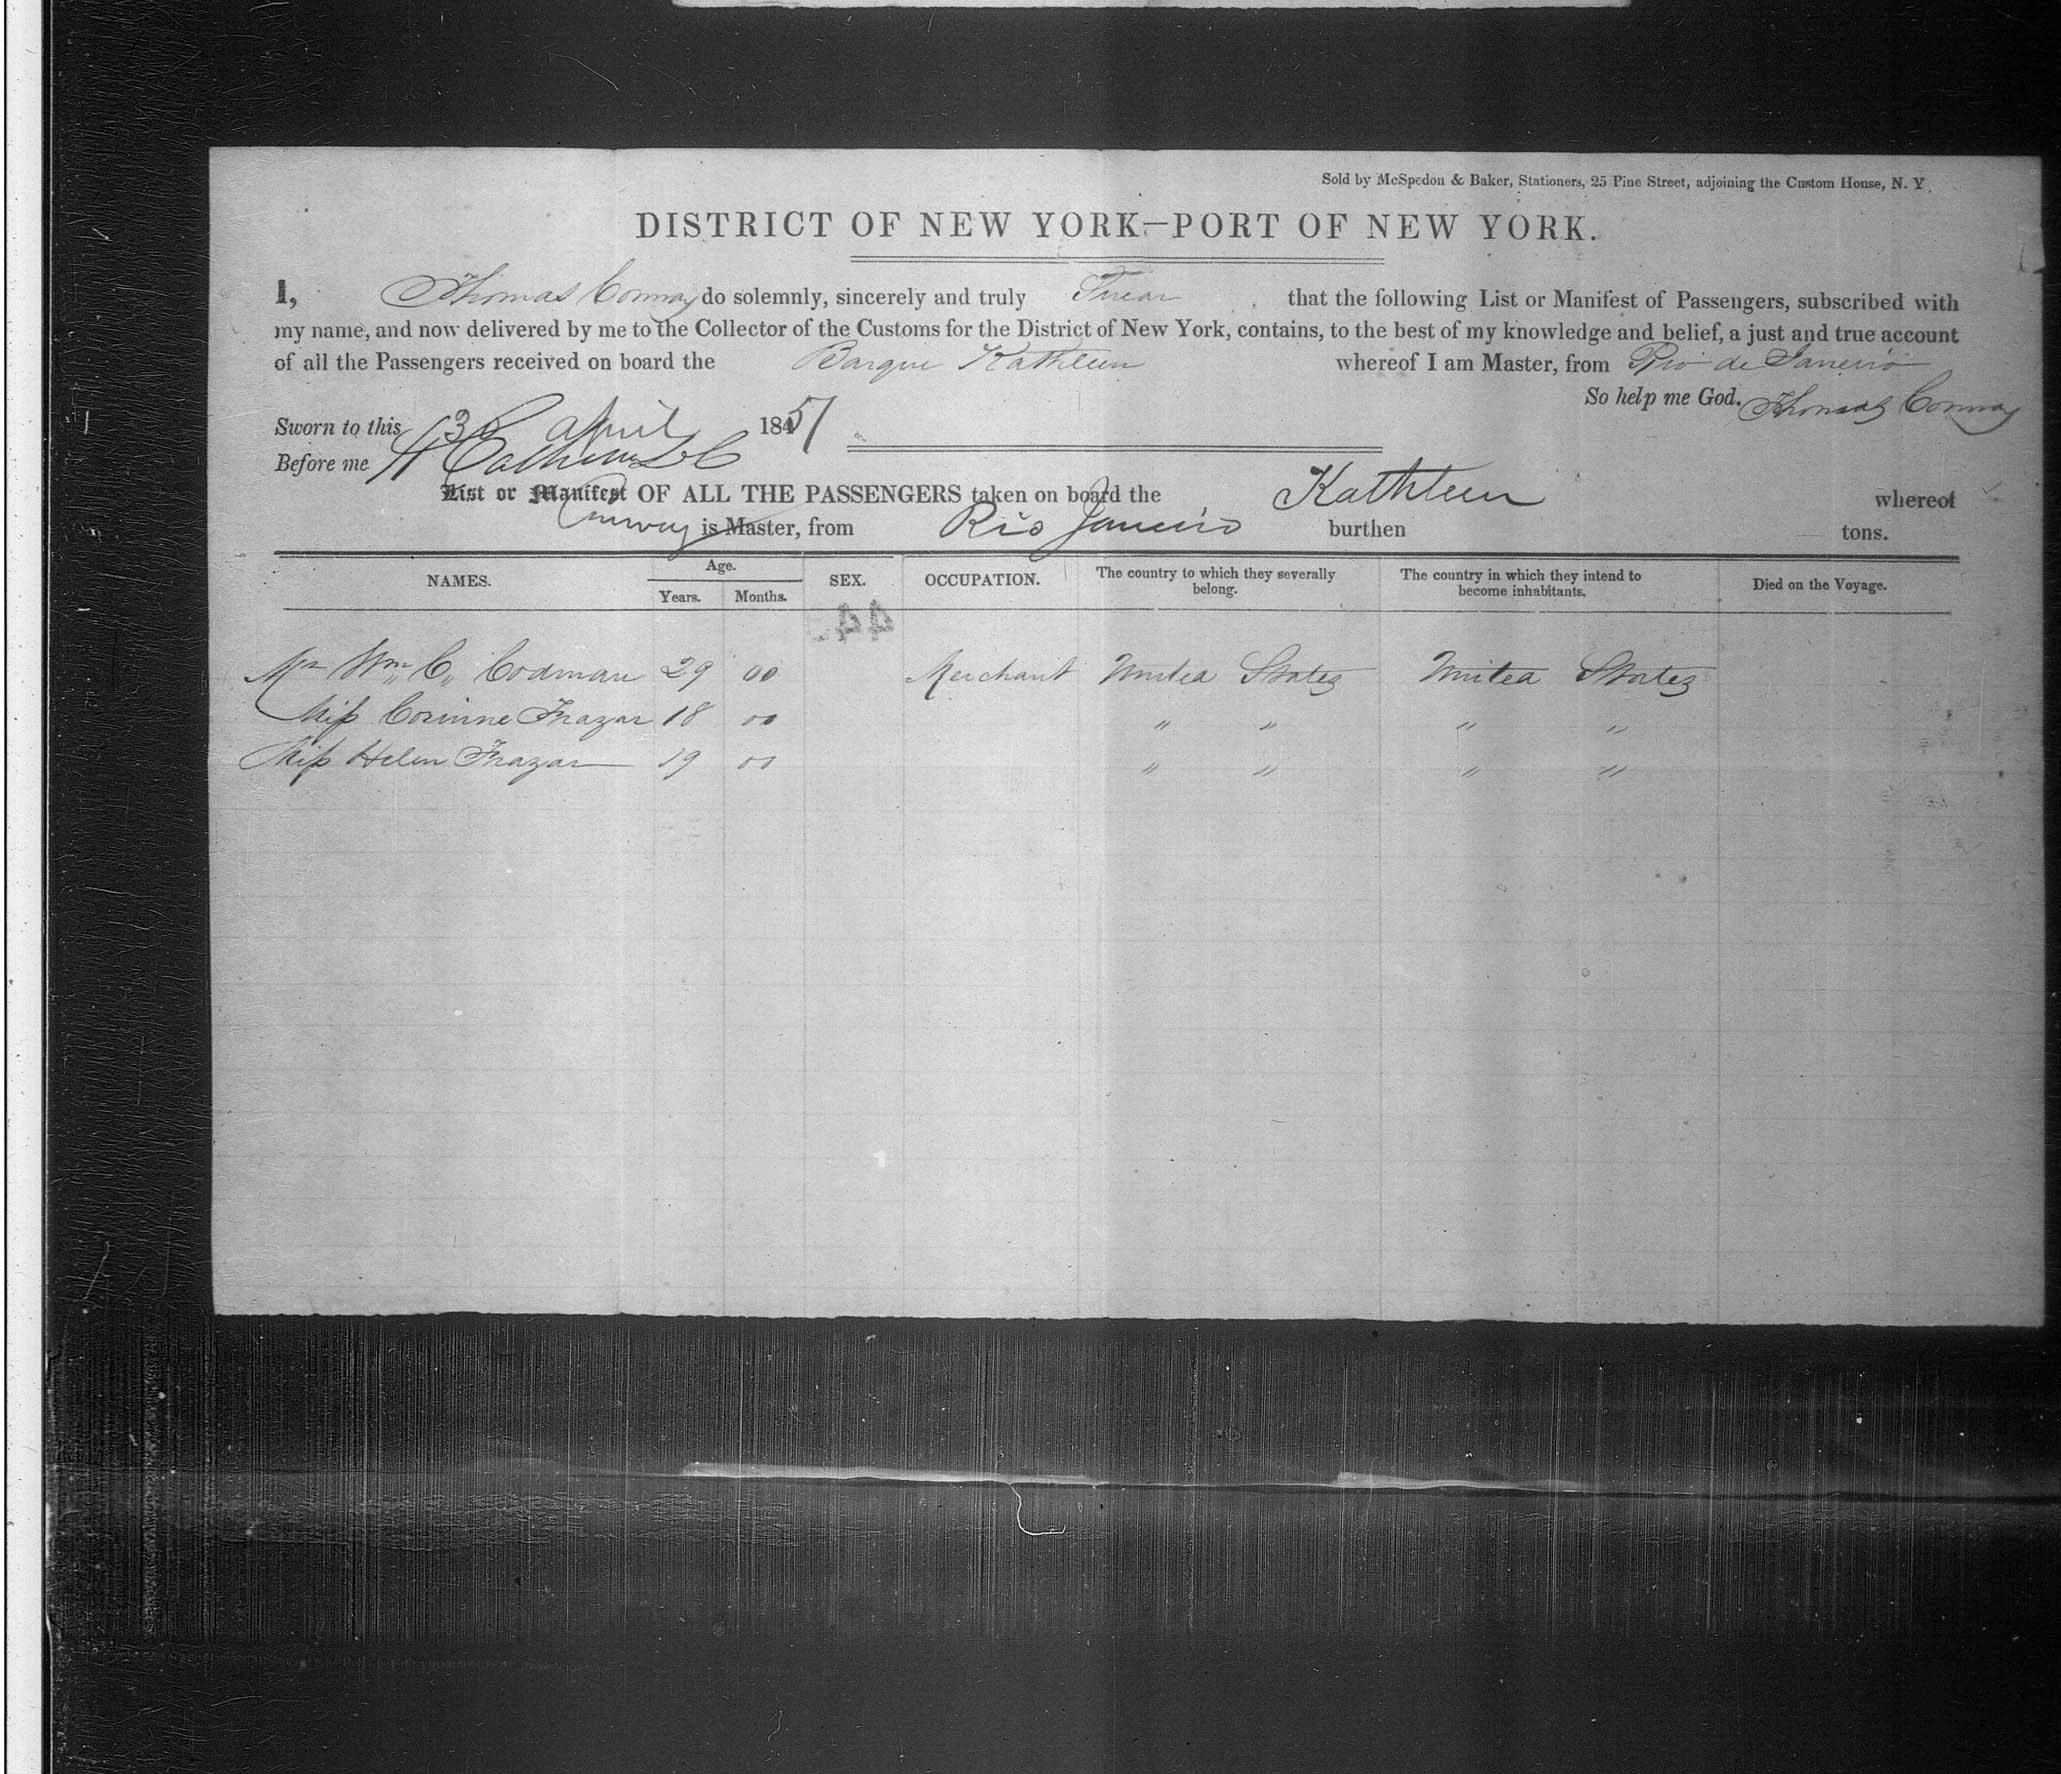 Sold by McSpedon & Baker, Stationers, 25 Pine Street, adjoining the Custom House, N. Y.
DISTRICT OF NEW YORK—PORT OF NEW YORK.
I, Thomas Conway do solemnly, sincerely and truly Swear that the following List or Manifest of Passengers, subscribed with
my name, and now delivered by me to the Collector of the Customs for the District of New York, contains, to the best of my knowledge and belief, a just and true account
of all the Passengers received on board the Barque Kathleen whereof I am Master, from Rio de Janeiro
So help me God. Thomas Conway
Sworn to this april 1851
Before me
List or Manifest OF ALL THE PASSENGERS taken on board the Kathleen whereof
Conway is Master, from Rio Janeiro burthen tons.
NAMES. Age. Years. Months. SEX. OCCUPATION. The country to which they severally belong. The country in which they intend to become inhabitants. Died on the Voyage.
44
Mr Wm C. Codman 29 00 Merchant United States United States
Miss Corinne Frazar 18 00 " " " "
Miss Helen Frazar 19 00 " " " "